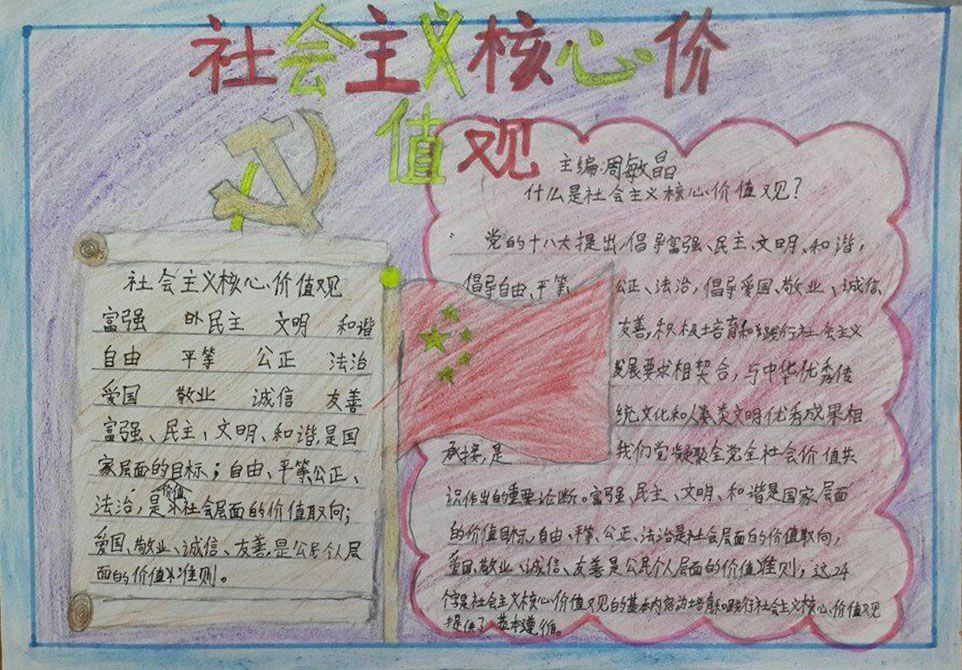 社会主义核心价
值观
社会主义核心价值观
富强 民主 文明 和谐
自由 平等 公正 法治
爱国 敬业 诚信 友善
富强、民主、文明、和谐,是国
家层面的目标;自由、平等公正、
价值
法治,是社会层面的价值取向;
爱国、敬业、诚信、友善,是公民个人层
面的价值准则。
主编:周敏晶
什么是社会主义核心价值观?
党的十八大提出,倡导富强、民主、文明、和谐,
倡导自由、平等 公正、法治,倡导爱国、敬业、诚信
友善,积极培育和践行社会主义
发展要求相契合,与中华优秀传
统文化和人类文明优秀成果相
承接,是 我们党凝聚全党全社会价值共
识作出的重要论断。富强、民主、文明、和谐是国家层面
的价值目标,自由、平等、公正、法治是社会层面的价值取向,
爱国、敬业、诚信、友善是公民个人层面的价值准则,这24
个字是社会主义核心价值观的基本内容为培育和践行社会主义核心价值观
提供了基本遵循。